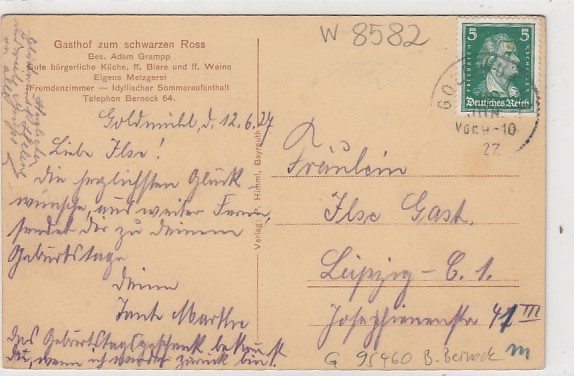 Gasthof zum schwarzen Ross
Bes. Adam Grampp
Gute bürgerliche Küche, ff. Biere und ff. Weine
Eigene Metzgerei
Fremdenzimmer — Idyllischer Sommeraufenthalt
Telephon Berneck 64.
W 8582
5 5
Deutsches Reich
Vor. 9-10
27
Goldmühl, d. 12.6.27
Liebe Ilse!
Die herzlichsten Glück-
wünsche, aus weiter Ferne,
sendet Dir zu Deinem
Geburtstage
Deine
Tante Marthe
Das Geburtstagsgeschenk bekommst
Du, wenn ich wieder zurück bin.
Verlag Himml, Bayreuth
Fräulein
Ilse Gast.
Leipzig - C. 1.
Josephinenstr 41 III
G 95460 B. Berneck m